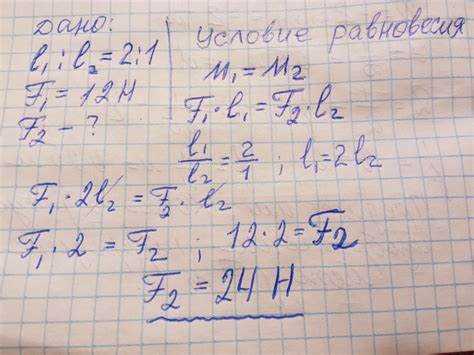 Дано:
l₁ : l₂ = 2:1
F₁ = 12 Н
F₂ - ?
Условие равновесия
М₁ = М₂
F₁ · l₁ = F₂ · l₂
l₁/l₂ = 2/1 ; l₁ = 2l₂
F₁ · 2l₂ = F₂ · l₂
F₁ · 2 = F₂ ; 12 · 2 = F₂
F₂ = 24 Н